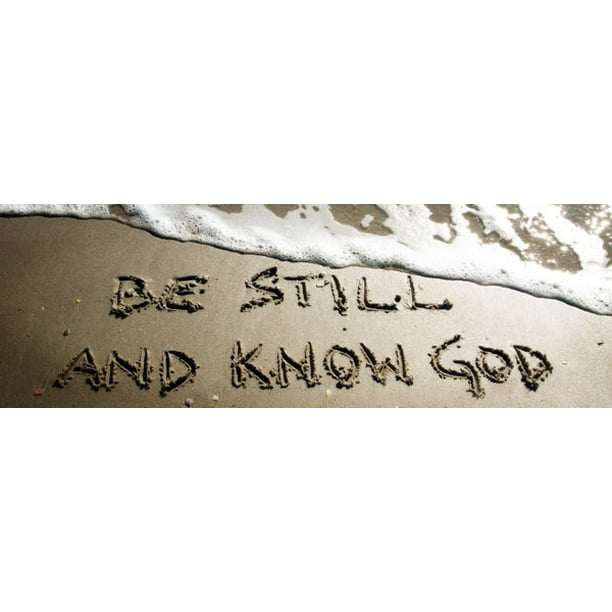 BE STILL
AND KNOW GOD